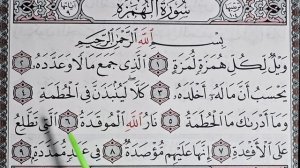 سُورَةُ الْهُمَزَةِ
بِسْمِ اللَّهِ الرَّحْمَٰنِ الرَّحِيمِ
وَيْلٌ لِّكُلِّ هُمَزَةٍ لُّمَزَةٍ ۝١ الَّذِي جَمَعَ مَالًا وَعَدَّدَهُ ۝٢
يَحْسَبُ أَنَّ مَالَهُ أَخْلَدَهُ ۝٣ كَلَّا لَيُنبَذَنَّ فِي الْحُطَمَةِ ۝٤
وَمَا أَدْرَاكَ مَا الْحُطَمَةُ ۝٥ نَارُ اللَّهِ الْمُوقَدَةُ ۝٦ الَّتِي تَطَّلِعُ
عَلَى الْأَفْئِدَةِ ۝٧ إِنَّهَا عَلَيْهِم مُّؤْصَدَةٌ ۝٨ فِي عَمَدٍ مُّمَدَّدَةٍ ۝٩